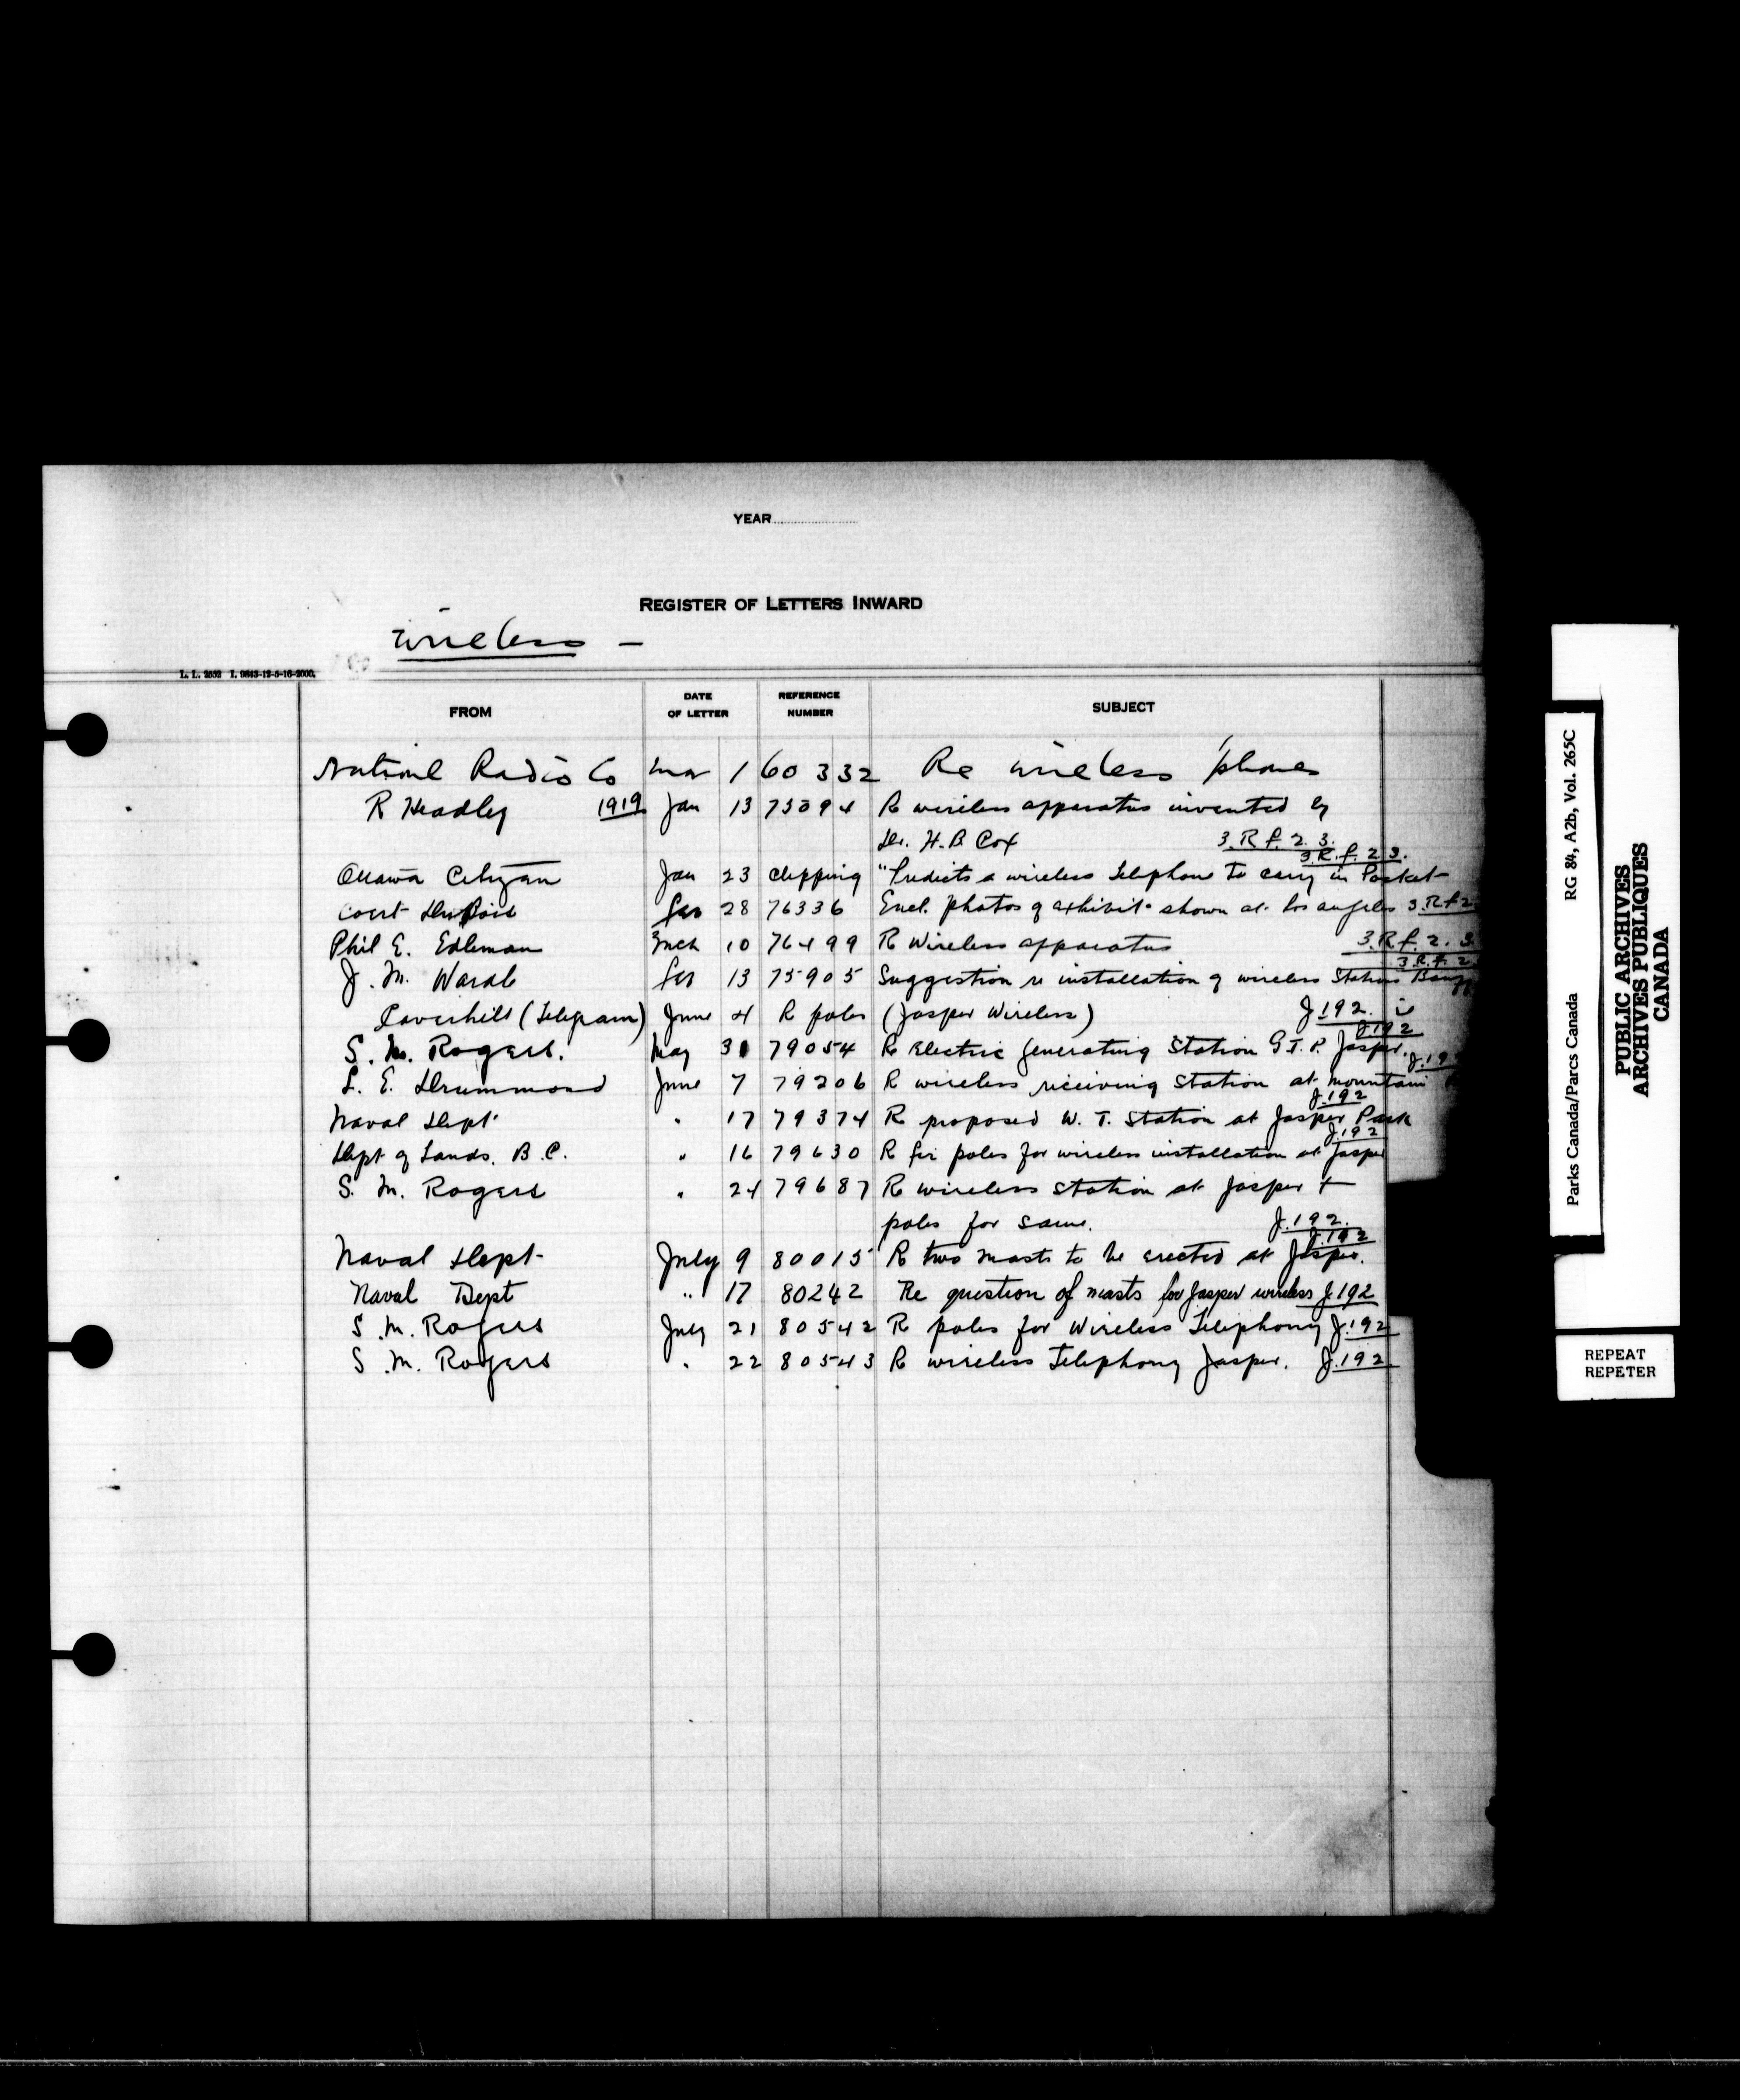 YEAR
REGISTER OF LETTERS INWARD
Wireless —
L. L. 2552 I. 9643-12-5-16-2000.
FROM DATE OF LETTER REFERENCE NUMBER SUBJECT
National Radio Co Mar 1 60332 Re wireless 'phones
R Headley 1919 Jan 13 75094 R wireless apparatus invented by
Dr. H. B. Cox 3.R.f.2.3.
3.R.f.2.3.
Ottawa Citizen Jan 23 Clipping "Predicts a wireless Telephone to carry in Pocket
Coert DuBois Feb 28 76336 Encl. photos of exhibit shown at Los Angeles 3.R.f.2
Phil E. Edleman Mch 10 76499 R Wireless apparatus 3.R.f.2.3.
3.R.f.2.
J. M. Wardle Feb 13 75905 Suggestion re installation of wireless Stations Banff
Caverhill (Telegram) June 4 R poles (Jasper Wireless) J.192
J.192
S. M. Rogers. May 31 79054 R Electric generating Station G.T.P. Jasper. J.19
L. E. Drummond June 7 79206 R wireless receiving Station at Mountain
J.192
Naval Dept " 17 79374 R proposed W. T. Station at Jasper Park
J.192
Dept of Lands. B.C. " 16 79630 R fir poles for wireless installation at Jasper
S. M. Rogers " 24 79687 R wireless station at Jasper +
poles for same. J.192.
J.192
Naval Dept July 9 80015 R two masts to be erected at Jasper.
Naval Dept " 17 80242 Re question of masts for Jasper wireless J.192
S. M. Rogers July 21 80542 R poles for Wireless Telephony J.192
S. M. Rogers " 22 80543 R wireless Telephony Jasper. J.192
Parks Canada/Parcs Canada RG 84, A2b, Vol. 265C
PUBLIC ARCHIVES
ARCHIVES PUBLIQUES
CANADA
REPEAT
REPETER